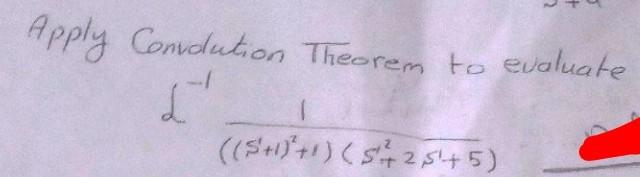 Apply Convolution Theorem to evaluate
L⁻¹ 1 / (((S+1)²+1) (S²+2S+5))